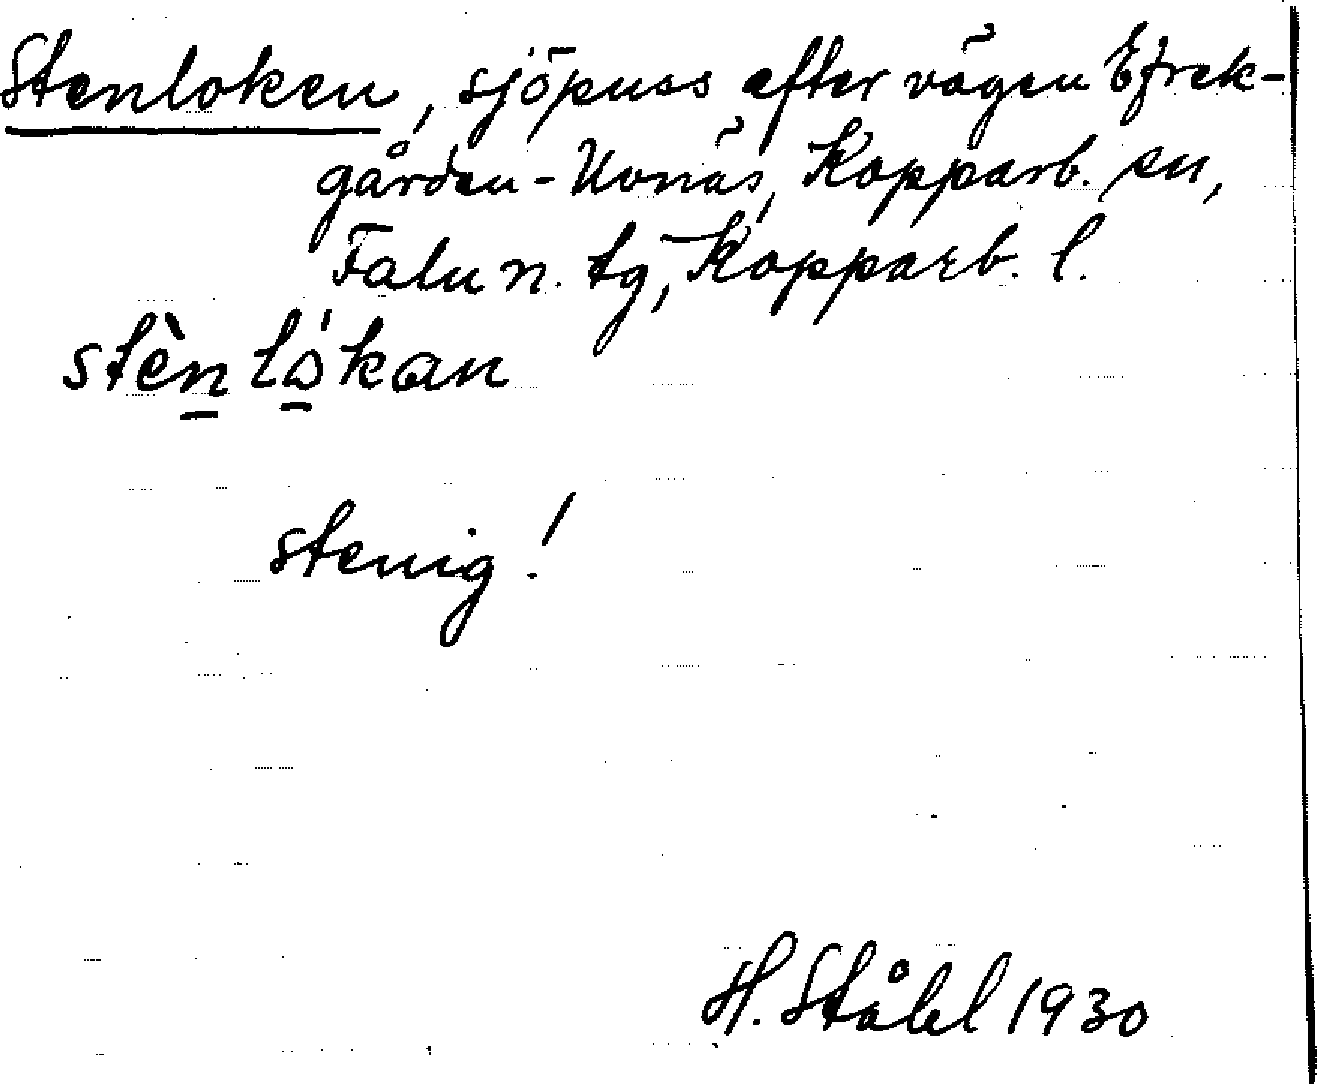 Stenloken, sjöpuss efter vägen Efrek-
gården-Uvnäs, Kopparb. sn,
Falu n. tg, Kopparb. l.
stèn lókan
stenig!
H. Ståhl 1930